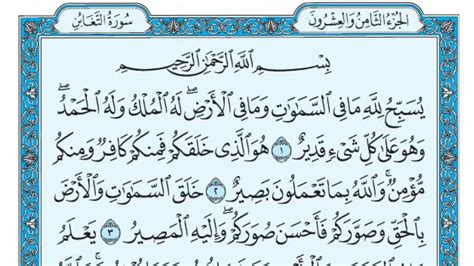 الجزء الثامن والعشرون
سورة التغابن
بِسْمِ ٱللَّهِ ٱلرَّحْمَٰنِ ٱلرَّحِيمِ
يُسَبِّحُ لِلَّهِ مَا فِي ٱلسَّمَٰوَٰتِ وَمَا فِي ٱلْأَرْضِۖ لَهُ ٱلْمُلْكُ وَلَهُ ٱلْحَمْدُۖ
وَهُوَ عَلَىٰ كُلِّ شَيْءٖ قَدِيرٌ ١ هُوَ ٱلَّذِي خَلَقَكُمْ فَمِنكُمْ كَافِرٞ وَمِنكُم
مُّؤْمِنٞۚ وَٱللَّهُ بِمَا تَعْمَلُونَ بَصِيرٌ ٢ خَلَقَ ٱلسَّمَٰوَٰتِ وَٱلْأَرْضَ
بِٱلْحَقِّ وَصَوَّرَكُمْ فَأَحْسَنَ صُوَرَكُمْۖ وَإِلَيْهِ ٱلْمَصِيرُ ٣ يَعْلَمُ